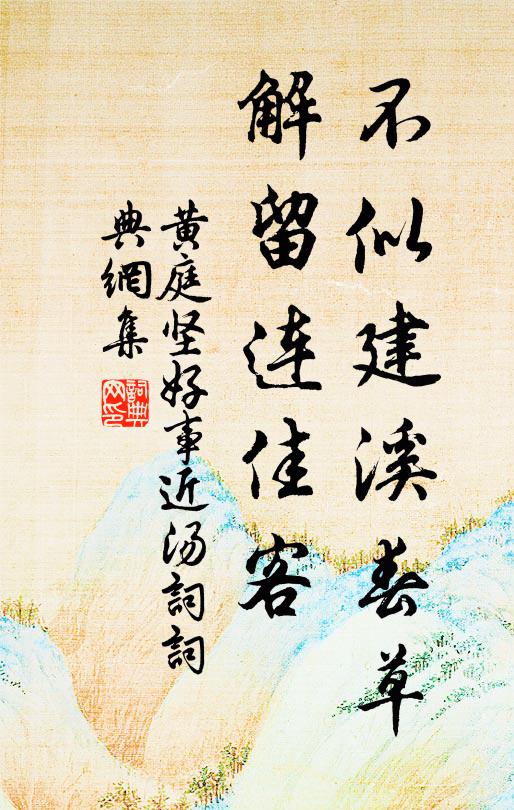 不似建溪春草
解留连佳客
黄庭坚好事近汤詞詞
典網集
詞典网印